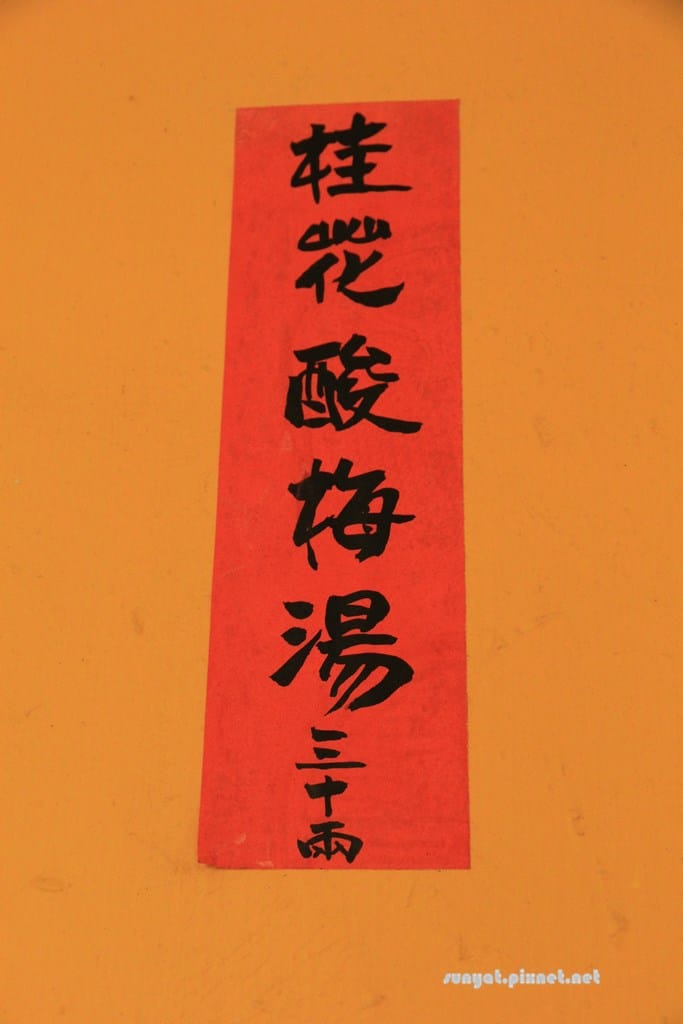 桂花酸梅湯三十兩
sunyat.pixnet.net